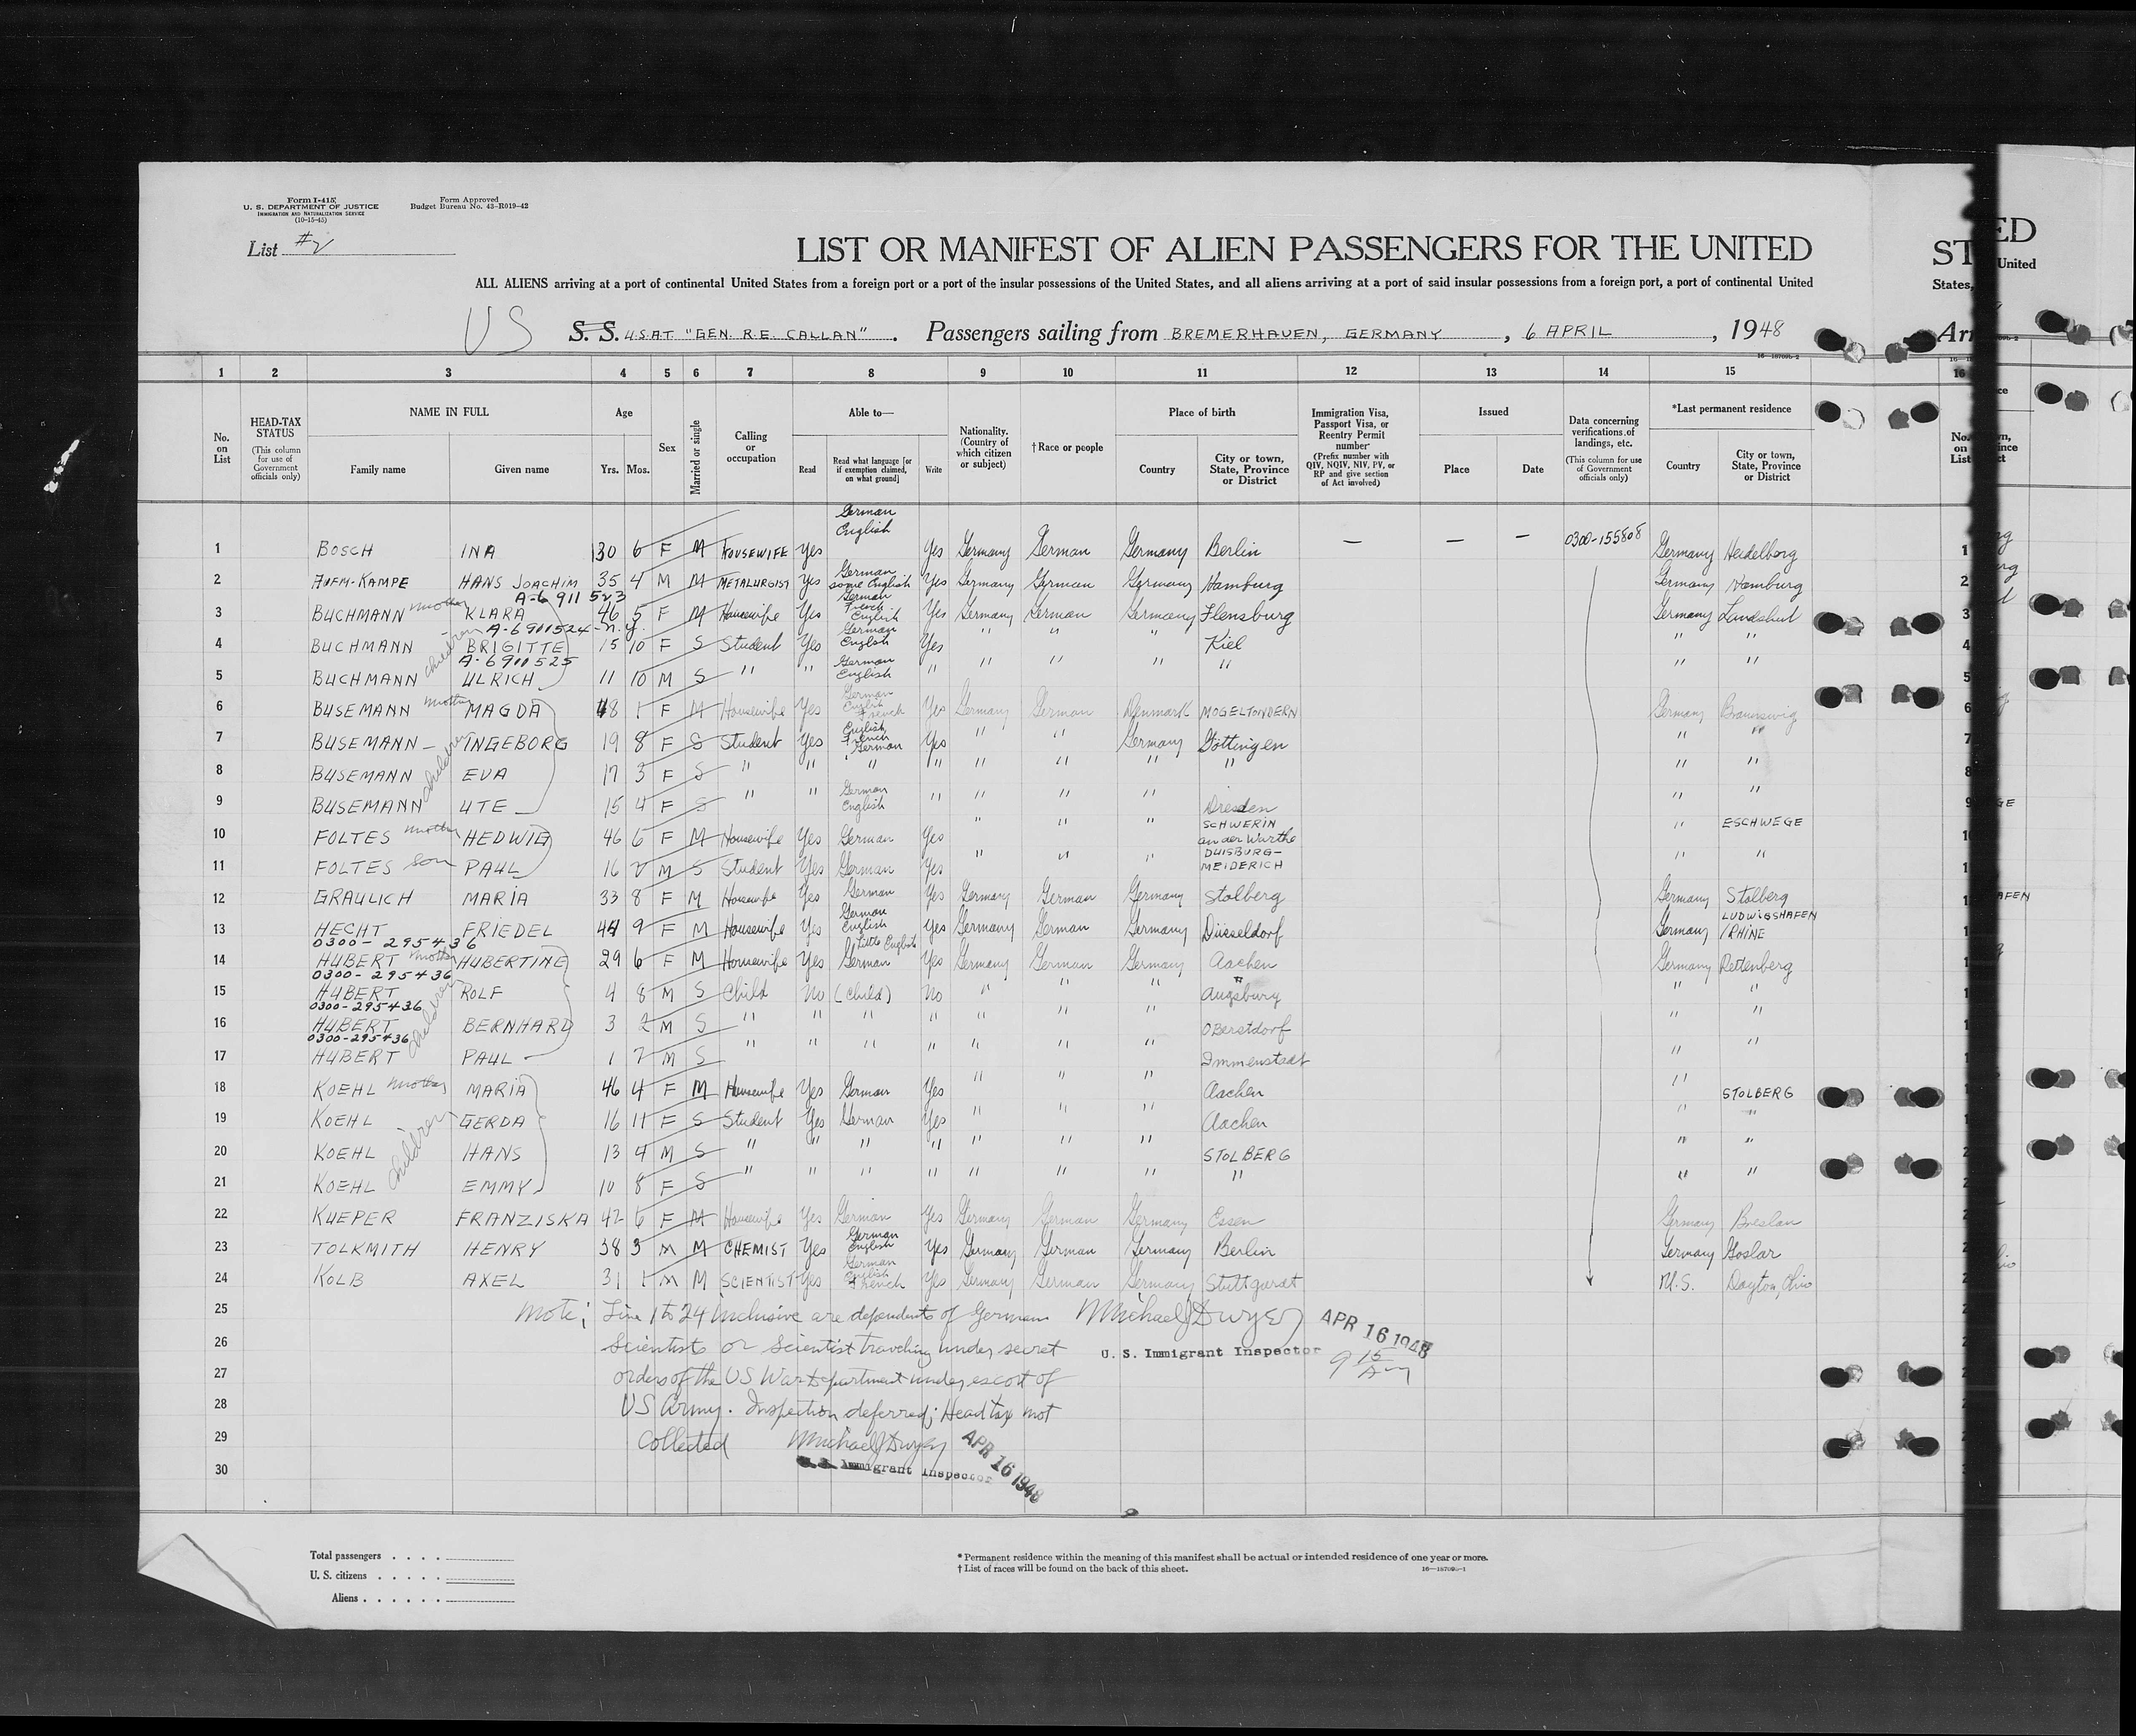 Form I-415
U. S. DEPARTMENT OF JUSTICE
IMMIGRATION AND NATURALIZATION SERVICE
(10-15-45)
Form Approved
Budget Bureau No. 43-R019-42
List #2
LIST OR MANIFEST OF ALIEN PASSENGERS FOR THE UNITED
ALL ALIENS arriving at a port of continental United States from a foreign port or a port of the insular possessions of the United States, and all aliens arriving at a port of said insular possessions from a foreign port, a port of continental United
US S. S. U.S.A.T. "GEN. R.E. CALLAN". Passengers sailing from BREMERHAVEN, GERMANY, 6 APRIL, 1948
1 2 3 4 5 6 7 8 9 10 11 12 13 14 15
No. on List
HEAD-TAX STATUS (This column for use of Government officials only)
NAME IN FULL
Family name Given name
Age
Yrs. Mos.
Sex
Married or single
Calling or occupation
Able to—
Read Read what language [or if exemption claimed, on what ground] Write
Nationality. (Country of which citizen or subject)
†Race or people
Place of birth
Country City or town, State, Province or District
Immigration Visa, Passport Visa, or Reentry Permit number (Prefix number with QIV, NQIV, NIV, PV, or RP and give section of Act involved)
Issued
Place Date
Data concerning verifications of landings, etc. (This column for use of Government officials only)
*Last permanent residence
Country City or town, State, Province or District
1 BOSCH INA 30 6 F M HOUSEWIFE Yes German English Yes Germany German Germany Berlin — — — 0300-155808 Germany Heidelberg
2 AUFM-KAMPE HANS JOACHIM 35 4 M M METALURGIST Yes German some English Yes Germany German Germany Hamburg Germany Hamburg
A-6 911 523
3 BUCHMANN mother KLARA 46 5 F M Housewife Yes German French English Yes Germany German Germany Flensburg Germany Landshut
A-6911524-n.y.
4 BUCHMANN children BRIGITTE 15 10 F S Student Yes German English Yes " " " Kiel " "
A-6911525
5 BUCHMANN ULRICH 11 10 M S " " German English " " " " " " "
6 BUSEMANN mother MAGDA 48 1 F M Housewife Yes German English French Yes Germany German Denmark MOGELTONDERN Germany Braunswig
7 BUSEMANN children INGEBORG 19 8 F S Student Yes English French German Yes " " Germany Göttingen " "
8 BUSEMANN EVA 17 3 F S " " " " " " " " " "
9 BUSEMANN UTE 15 4 F S " " German English " " " " Dresden " "
10 FOLTES mother HEDWIG 46 6 F M Housewife Yes German Yes " " " SCHWERIN an der Warthe " ESCHWEGE
11 FOLTES son PAUL 16 2 M S Student Yes German Yes " " " DUISBURG-MEIDERICH " "
12 GRAULICH MARIA 33 8 F M Housewife Yes German Yes Germany German Germany Stolberg Germany Stolberg
13 HECHT FRIEDEL 44 9 F M Housewife Yes German English Yes Germany German Germany Düsseldorf Germany LUDWIGSHAFEN /RHINE
0300-295436
14 HUBERT mother HUBERTINE 29 6 F M Housewife Yes Little English German Yes Germany German Germany Aachen Germany Rettenberg
0300-295436
15 HUBERT children ROLF 4 8 M S Child No (Child) No " " " Augsburg " "
0300-295436
16 HUBERT BERNHARD 3 2 M S " " " " " " " OBerstdorf " "
0300-295436
17 HUBERT PAUL 1 7 M S " " " " " " " Immenstadt " "
18 KOEHL mother MARIA 46 4 F M Housewife Yes German Yes " " " Aachen " STOLBERG
19 KOEHL children GERDA 16 11 F S Student Yes German Yes " " " Aachen " "
20 KOEHL HANS 13 4 M S " " " " " " " STOLBERG " "
21 KOEHL EMMY 10 8 F S " " " " " " " " " "
22 KUEPER FRANZISKA 42 6 F M Housewife Yes German Yes Germany German Germany Essen Germany Breslau
23 TOLKMITH HENRY 38 3 M M CHEMIST Yes German English Yes Germany German Germany Berlin Germany Goslar
24 KOLB AXEL 31 1 M M SCIENTIST Yes German English French Yes Germany German Germany Stuttgardt U.S. Dayton, Ohio
25 Note; Line 1 to 24 inclusive are dependents of German Michael J Dwyer APR 16 1948
26 Scientists or Scientist traveling under secret U. S. Immigrant Inspector 9 15 Am
27 orders of the US War Department under escort of
28 US Army. Inspection deferred; Head tax not
29 Collected Michael J Dwyer APR 16 1948
30 U. S. Immigrant Inspector
Total passengers
U. S. citizens
Aliens
* Permanent residence within the meaning of this manifest shall be actual or intended residence of one year or more.
† List of races will be found on the back of this sheet.